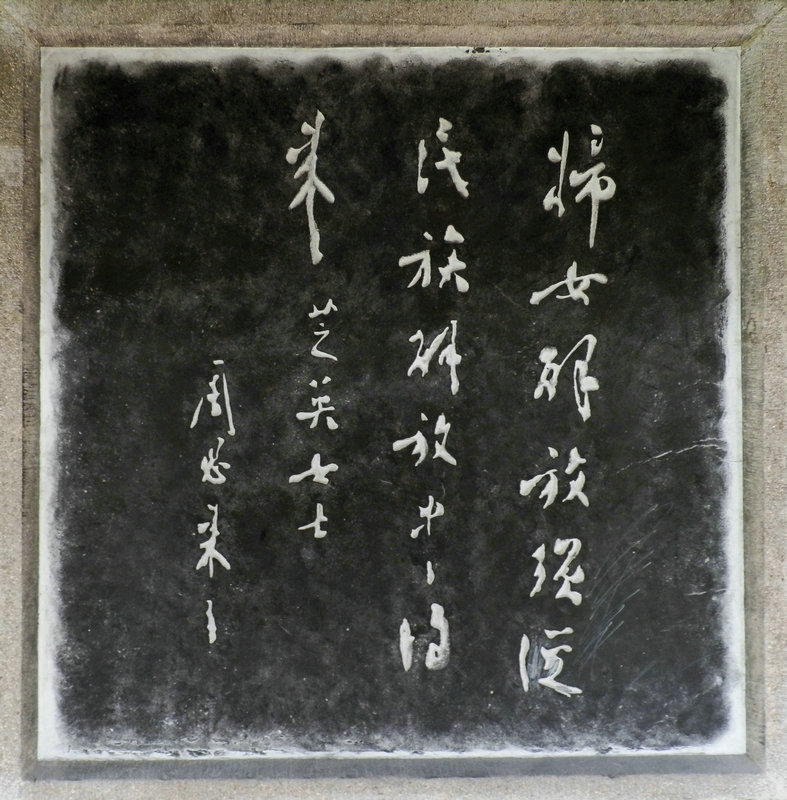 婦女解放須從
民族解放中得
来 芝英女士
周恩来